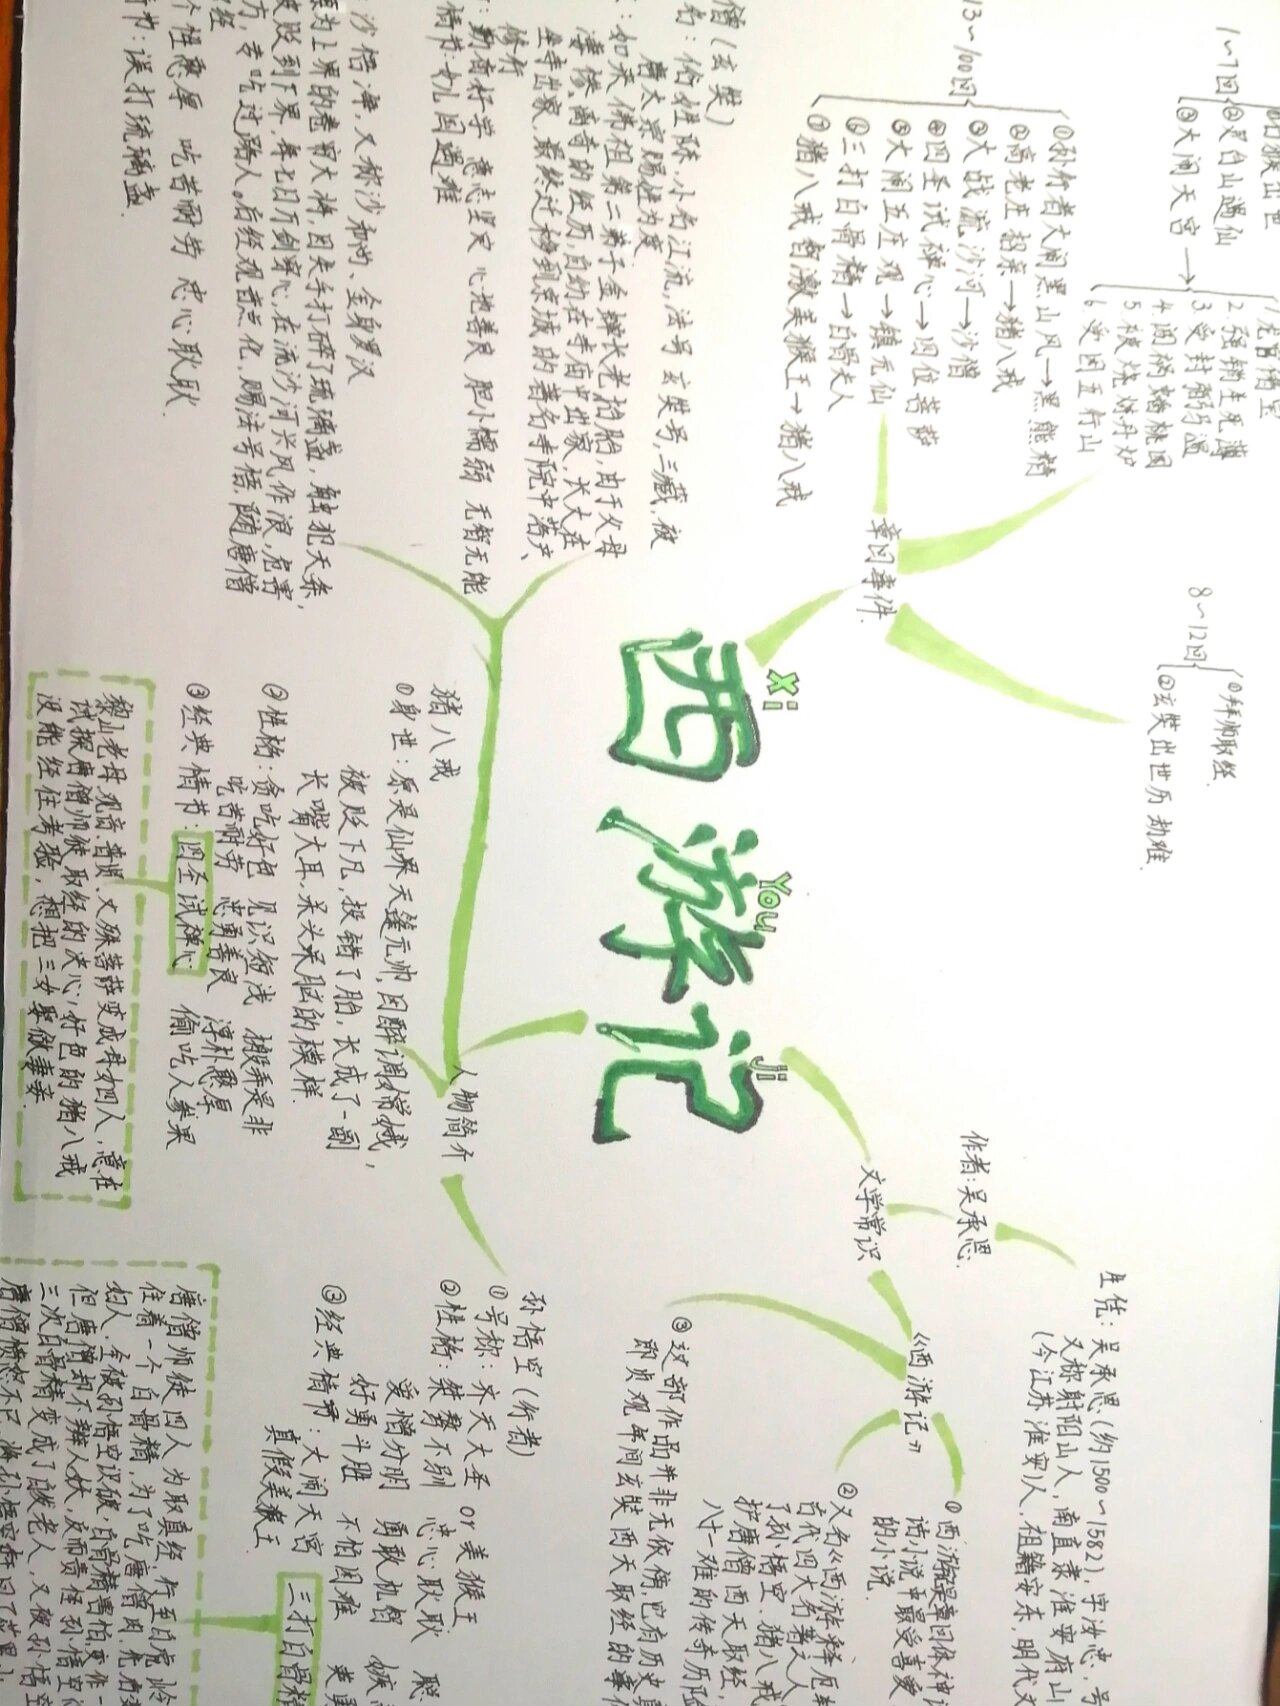 Xi You ji
西游记
章回事件.
1~7回
②灵台山遇仙
③大闹天宫→
2.强销生死簿
3.受封弼弱温
4.闹祸蟠桃园
5.被烧炼丹炉
6.受困五行山
8~12回
①拜师取经.
②玄奘出世历劫难.
13~100回
①孙行者大闹黑山风→黑熊精
②高老庄招亲→猪八戒
③大战流沙河→沙僧
④四圣试禅心→四位菩萨
⑤大闹五庄观→镇元仙
⑥三打白骨精→白骨夫人
⑦猪八戒智激美猴王→猪八戒
文学常识
作者:吴承恩.
生优:吴承恩(约1500~1582),字汝忠,号
又称射阳山人,南直隶淮安府山
(今江苏淮安)人,祖籍安东,明代
《西游记》
①西游记是章回体神
话小说中最受喜爱
的小说.
②又名《西游释厄
古代四大名著之
了孙悟空、猪八戒
护唐僧西天取经,
八十一难的传奇历险
③这部作品并非无依倚,它有历史
即贞观年间玄奘西天取经的事
人物简介
僧(玄奘)
俗姓陈,小名江流,法号玄奘号,三藏,被
唐太宗赐姓为唐
:如来佛祖第二弟子金蝉长老投胎,由于父母
凄惨、离奇的经历,自幼在寺庙中出家,长大在
出家,最终迁移到京城的著名寺院中落户、
修行
:勤奋好学 意志坚定 心地善良 胆小懦弱 无智无能
情节:女儿国遇难
沙悟净,又称沙和尚、金身罗汉
为上界的卷帘大将,因失手打碎了琉璃盏,触犯天条,
被贬到下界,每七日万剑穿心,在流沙河兴风作浪,危害
方,专吃过路人。后经观音点化,赐法号悟,随唐僧
经
个性憨厚 吃苦耐劳 忠心耿耿.
节:误打琉璃盏.
猪八戒
①身世:原是仙界天蓬元帅,因醉调嫦娥,
被贬下凡,投错了胎,长成了一副
长嘴大耳,呆头呆脑的模样.
②性格:贪吃好色 见识短浅 搬弄是非
吃苦耐劳 忠勇善良 淳朴憨厚
③经典情节:四圣试禅心 偷吃人参果
黎山老母、观音、普贤、文殊菩萨变成母女四人,意在
试探唐僧师徒取经的决心,好色的猪八戒
没能经住考验,想把三女娶做妻妾.
孙悟空(行者)
①号称:齐天大圣 or 美猴王
②性格:桀骜不驯 忠心耿耿 聪
爱憎分明 勇敢机智 嫉
好勇斗胜 不怕困难
③经典情节:大闹天宫 三打白骨精
真假美猴王
唐僧师徒四人为取真经,行至白虎岭
住着一个白骨精,为了吃唐僧肉,先后变
妇人,全被孙悟空识破.白骨精害怕,变作一
但唐僧却不辨人妖,反而责怪孙悟空
三次白骨精变成了白发老人,又被孙悟空
唐僧愤怒不已